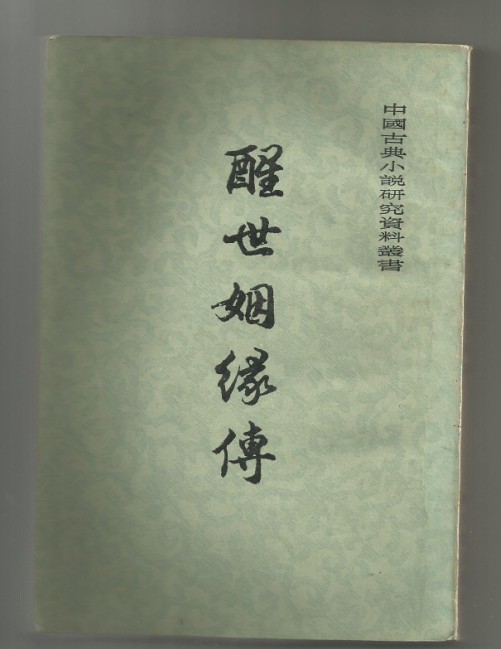 中國古典小說研究資料叢書
醒世姻緣傳